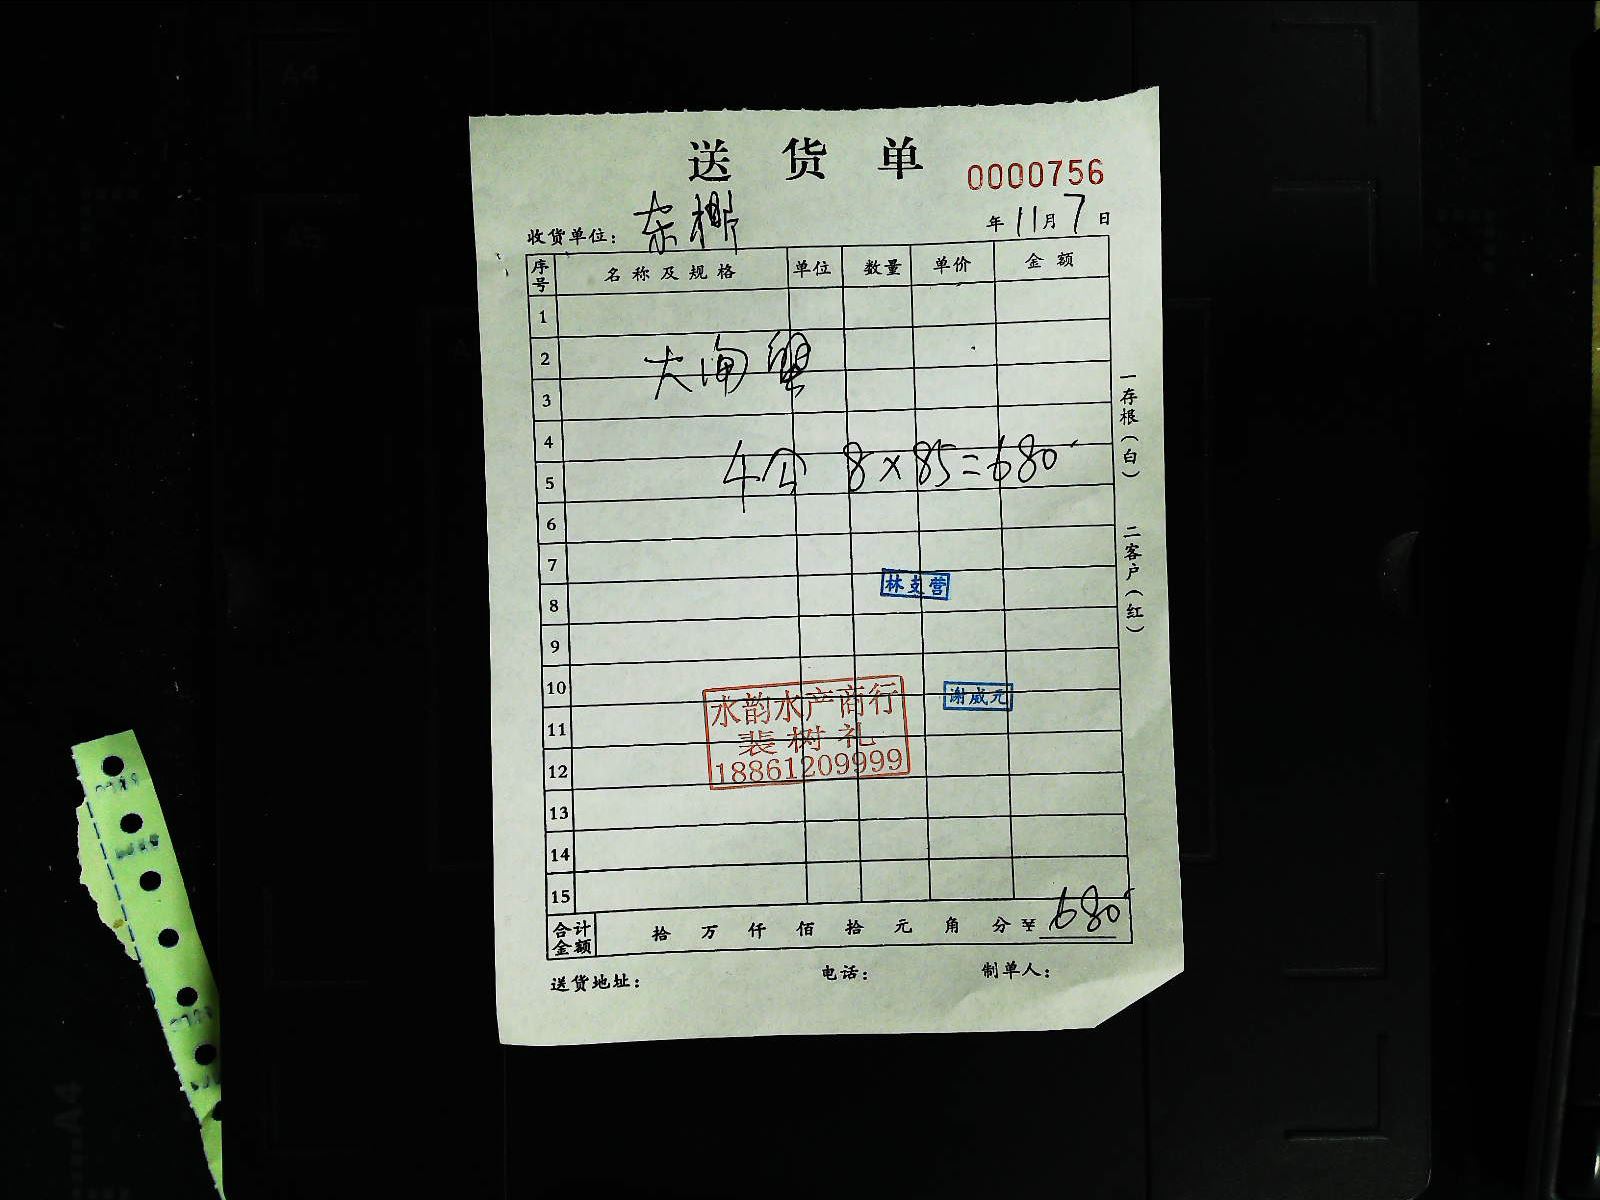 送货单
0000756
收货单位：
年 11月 7 日
序号 名称及规格 单位 数量 单价 金额
1
2
大闸蟹
3
4
4公 8×85=680
5
6
7
林支营
8
9
10
谢威元
水韵水产商行
11
裴树礼
12
18861209999
13
14
15
合计金额 拾 万 仟 佰 拾 元 角 分 ¥ 680
送货地址： 电话： 制单人：
一存根（白） 二客户（红）
A4